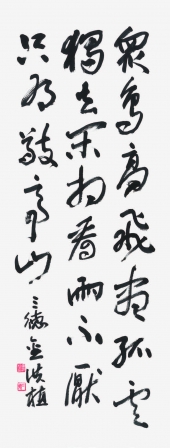 衆鳥高飛盡孤雲
獨去閑相看兩不厭
只有敬亭山